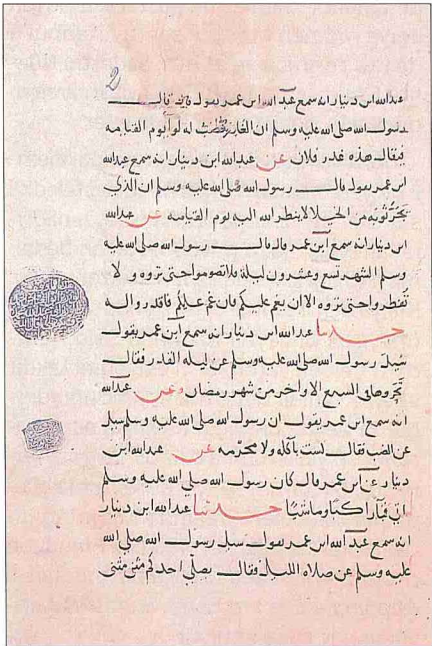 عبدالله ابن دينار انه سمع عبد الله ابن عمر يقول قال
رسول الله صلى الله عليه وسلم ان الغادر ينصب له لوا يوم القيامه
فيقال هذه غدر فلان عن عبدالله ابن دينار انه سمع عبدالله
ابن عمر يقول قال رسول الله صلى الله عليه وسلم ان الذي
يجر ثوبه من الخيلا لا ينظر الله اليه يوم القيامه عن عبدالله
ابن دينار انه سمع ابن عمر قال قال رسول الله صلى الله عليه
وسلم الشهر تسع وعشرون ليلة فلا تصوموا حتى تروه ولا
تفطروا حتى تروه الا ان يغم عليكم فان غم عليكم فاقدروا له
حدثنا عبدالله ابن دينار انه سمع ابن عمر يقول
سيل رسول الله صلى الله عليه وسلم عن ليله القدر فقال
تحروها في السبع الاواخر من شهر رمضان وعن عبدالله
انه سمع ابن عمر يقول ان رسول الله صلى الله عليه وسلم سيل
عن الضب فقال لست باكله ولا محرمه عن عبدالله ابن
دينار عن ابن عمر قال كان رسول الله صلى الله عليه وسلم
ياتي قبا راكبا وماشيا حدثنا عبدالله ابن دينار
انه سمع عبد الله ابن عمر يقول سيل رسول الله صلى الله
عليه وسلم عن صلاه الليل فقال يصلي احدكم مثنى مثنى